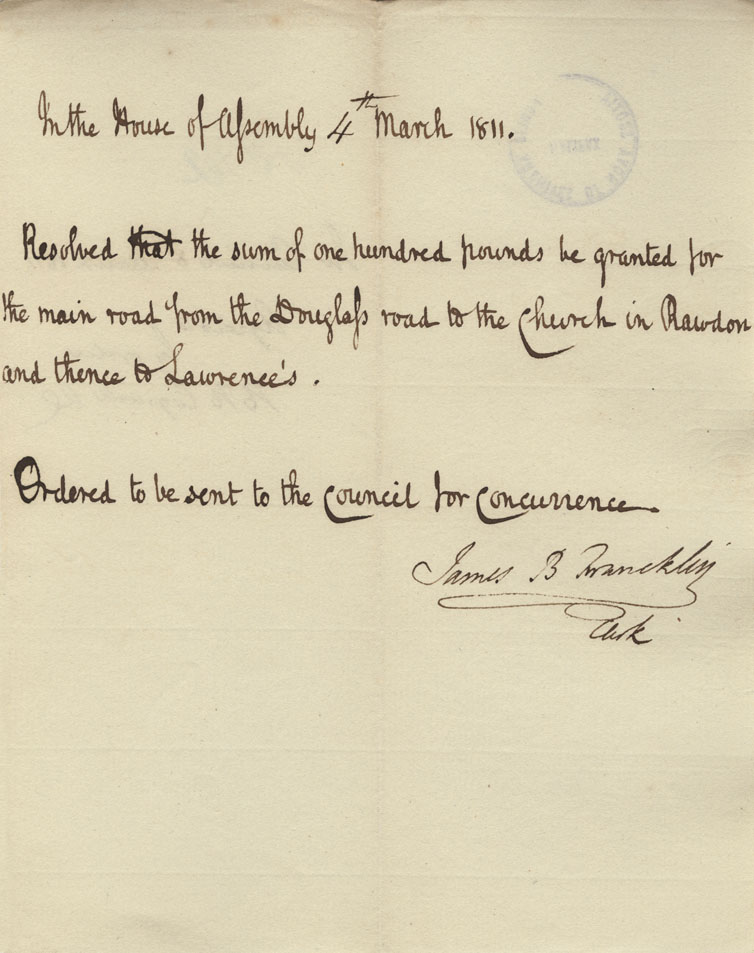 In the House of Assembly 4th March 1811.
Resolved that the sum of one hundred pounds be granted for
the main road from the Douglass road to the Church in Rawdon
and thence to Lawrence's.
Ordered to be sent to the Council for Concurrence
James B Francklin
Clerk